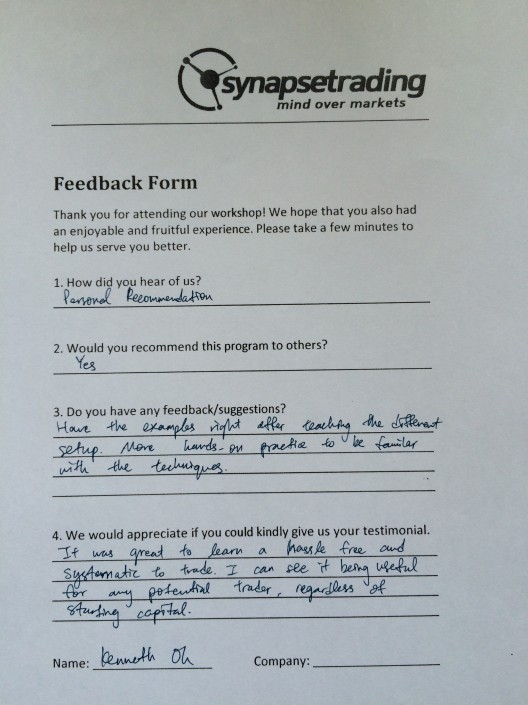 synapsetrading
mind over markets
Feedback Form
Thank you for attending our workshop! We hope that you also had
an enjoyable and fruitful experience. Please take a few minutes to
help us serve you better.
1. How did you hear of us?
Personal Recommendation
2. Would you recommend this program to others?
Yes
3. Do you have any feedback/suggestions?
Have the examples right after teaching the different
setup. More hands-on practice to be familar
with the techniques.
4. We would appreciate if you could kindly give us your testimonial.
It was great to learn a hassle free and
systematic to trade. I can see it being useful
for any potential trader, regardless of
starting capital.
Name: Kenneth Oh Company: